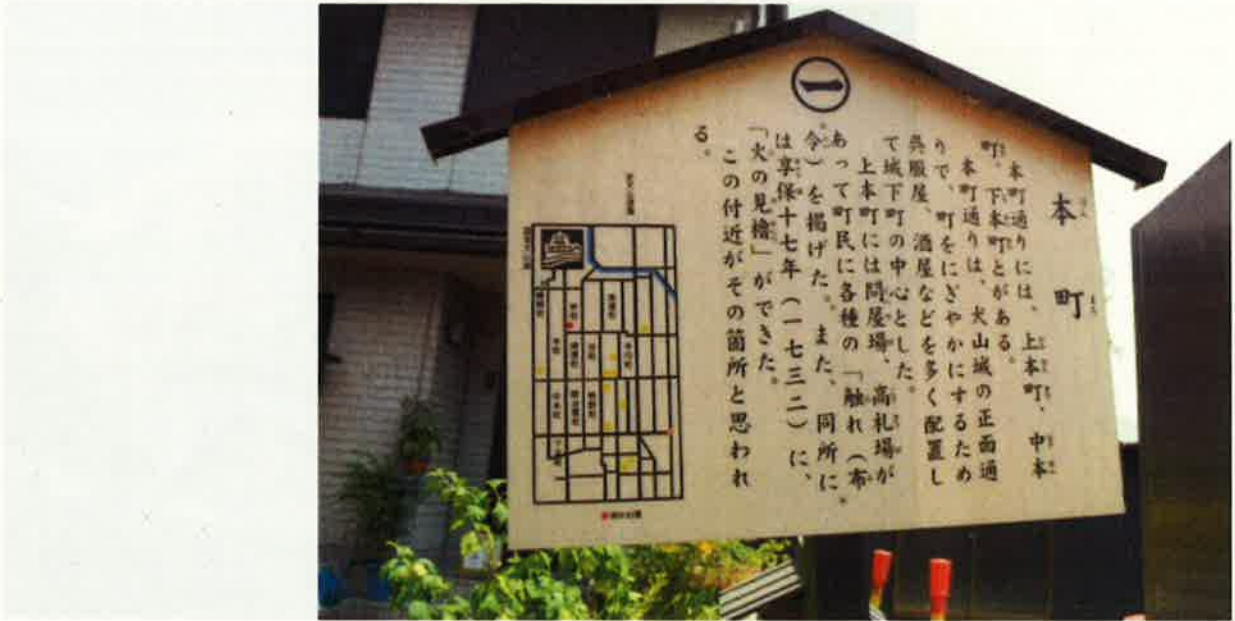 一
本町
本町通りには、上本町、中本
町、下本町とがある。
本町通りは、犬山城の正面通
りで、町をにぎやかにするため
呉服屋、酒屋などを多く配置し
て城下町の中心とした。
上本町には問屋場、高札場が
あって町民に各種の「触れ(布
令)を掲げた。また、同所に
は享保十七年(一七三二)に、
「火の見櫓」ができた。
この付近がその箇所と思われ
る。